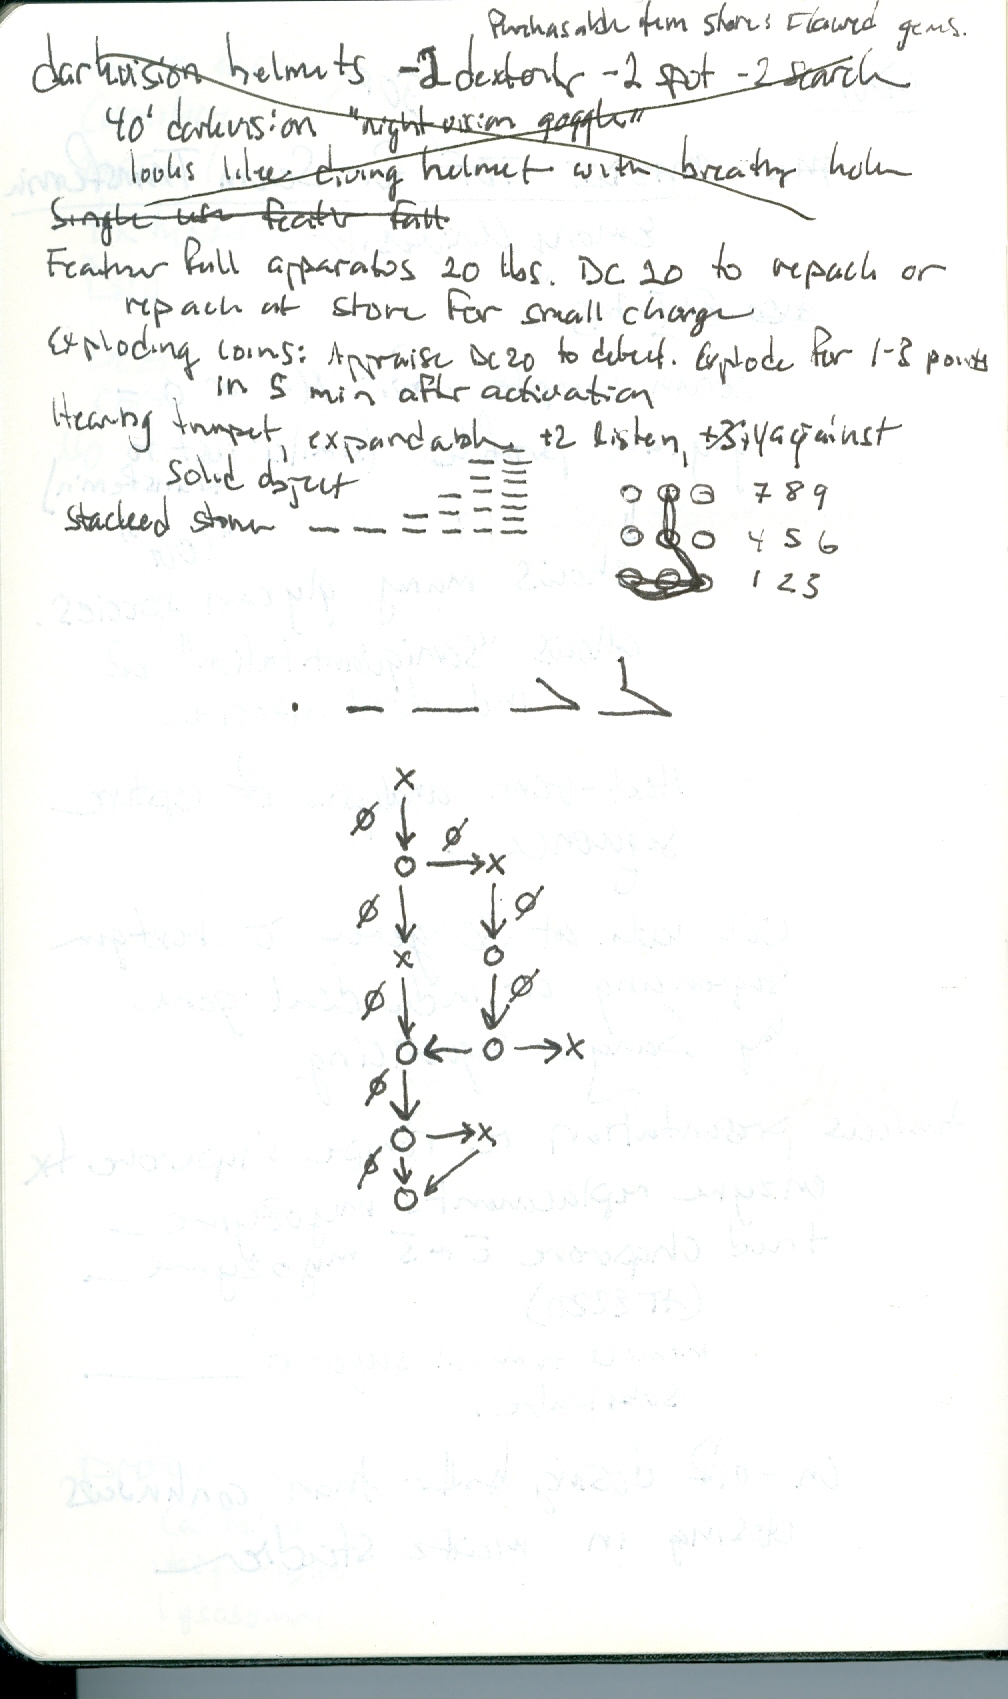 Purchasable item stores Flawed gems.
darkvision helmets -2 dexterity -2 spot -2 search
40' darkvision "night vision goggles"
looks like diving helmet with breathing holes
Single use feather fall
Feather fall apparatus 20 lbs. DC 20 to repack or
repack at store for small charge
Exploding coins: Appraise DC20 to detect. Explode for 1-3 points
in 5 min after activation
Hearing trumpet, expandable. +2 listen, against
solid object
stacked stones
7 8 9
4 5 6
1 2 3
x
Ø Ø
O x
Ø Ø
x O
Ø Ø
O O x
Ø
O x
Ø
O